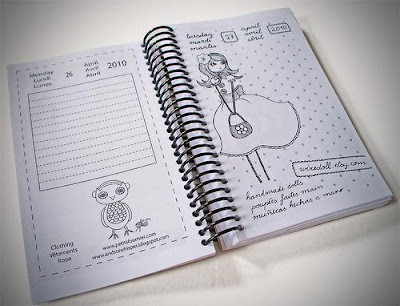 Monday
Lundi
Lunes
26
April
Avril
Abril
2010
www.andsoiwhisper.blogspot.com
Clothing
Vêtements
Ropa
tuesday
mardi
martes
27
april
avril
abril
2010
wiredoll.etsy.com
handmade dolls
poupées faites main
muñecas hechas a mano